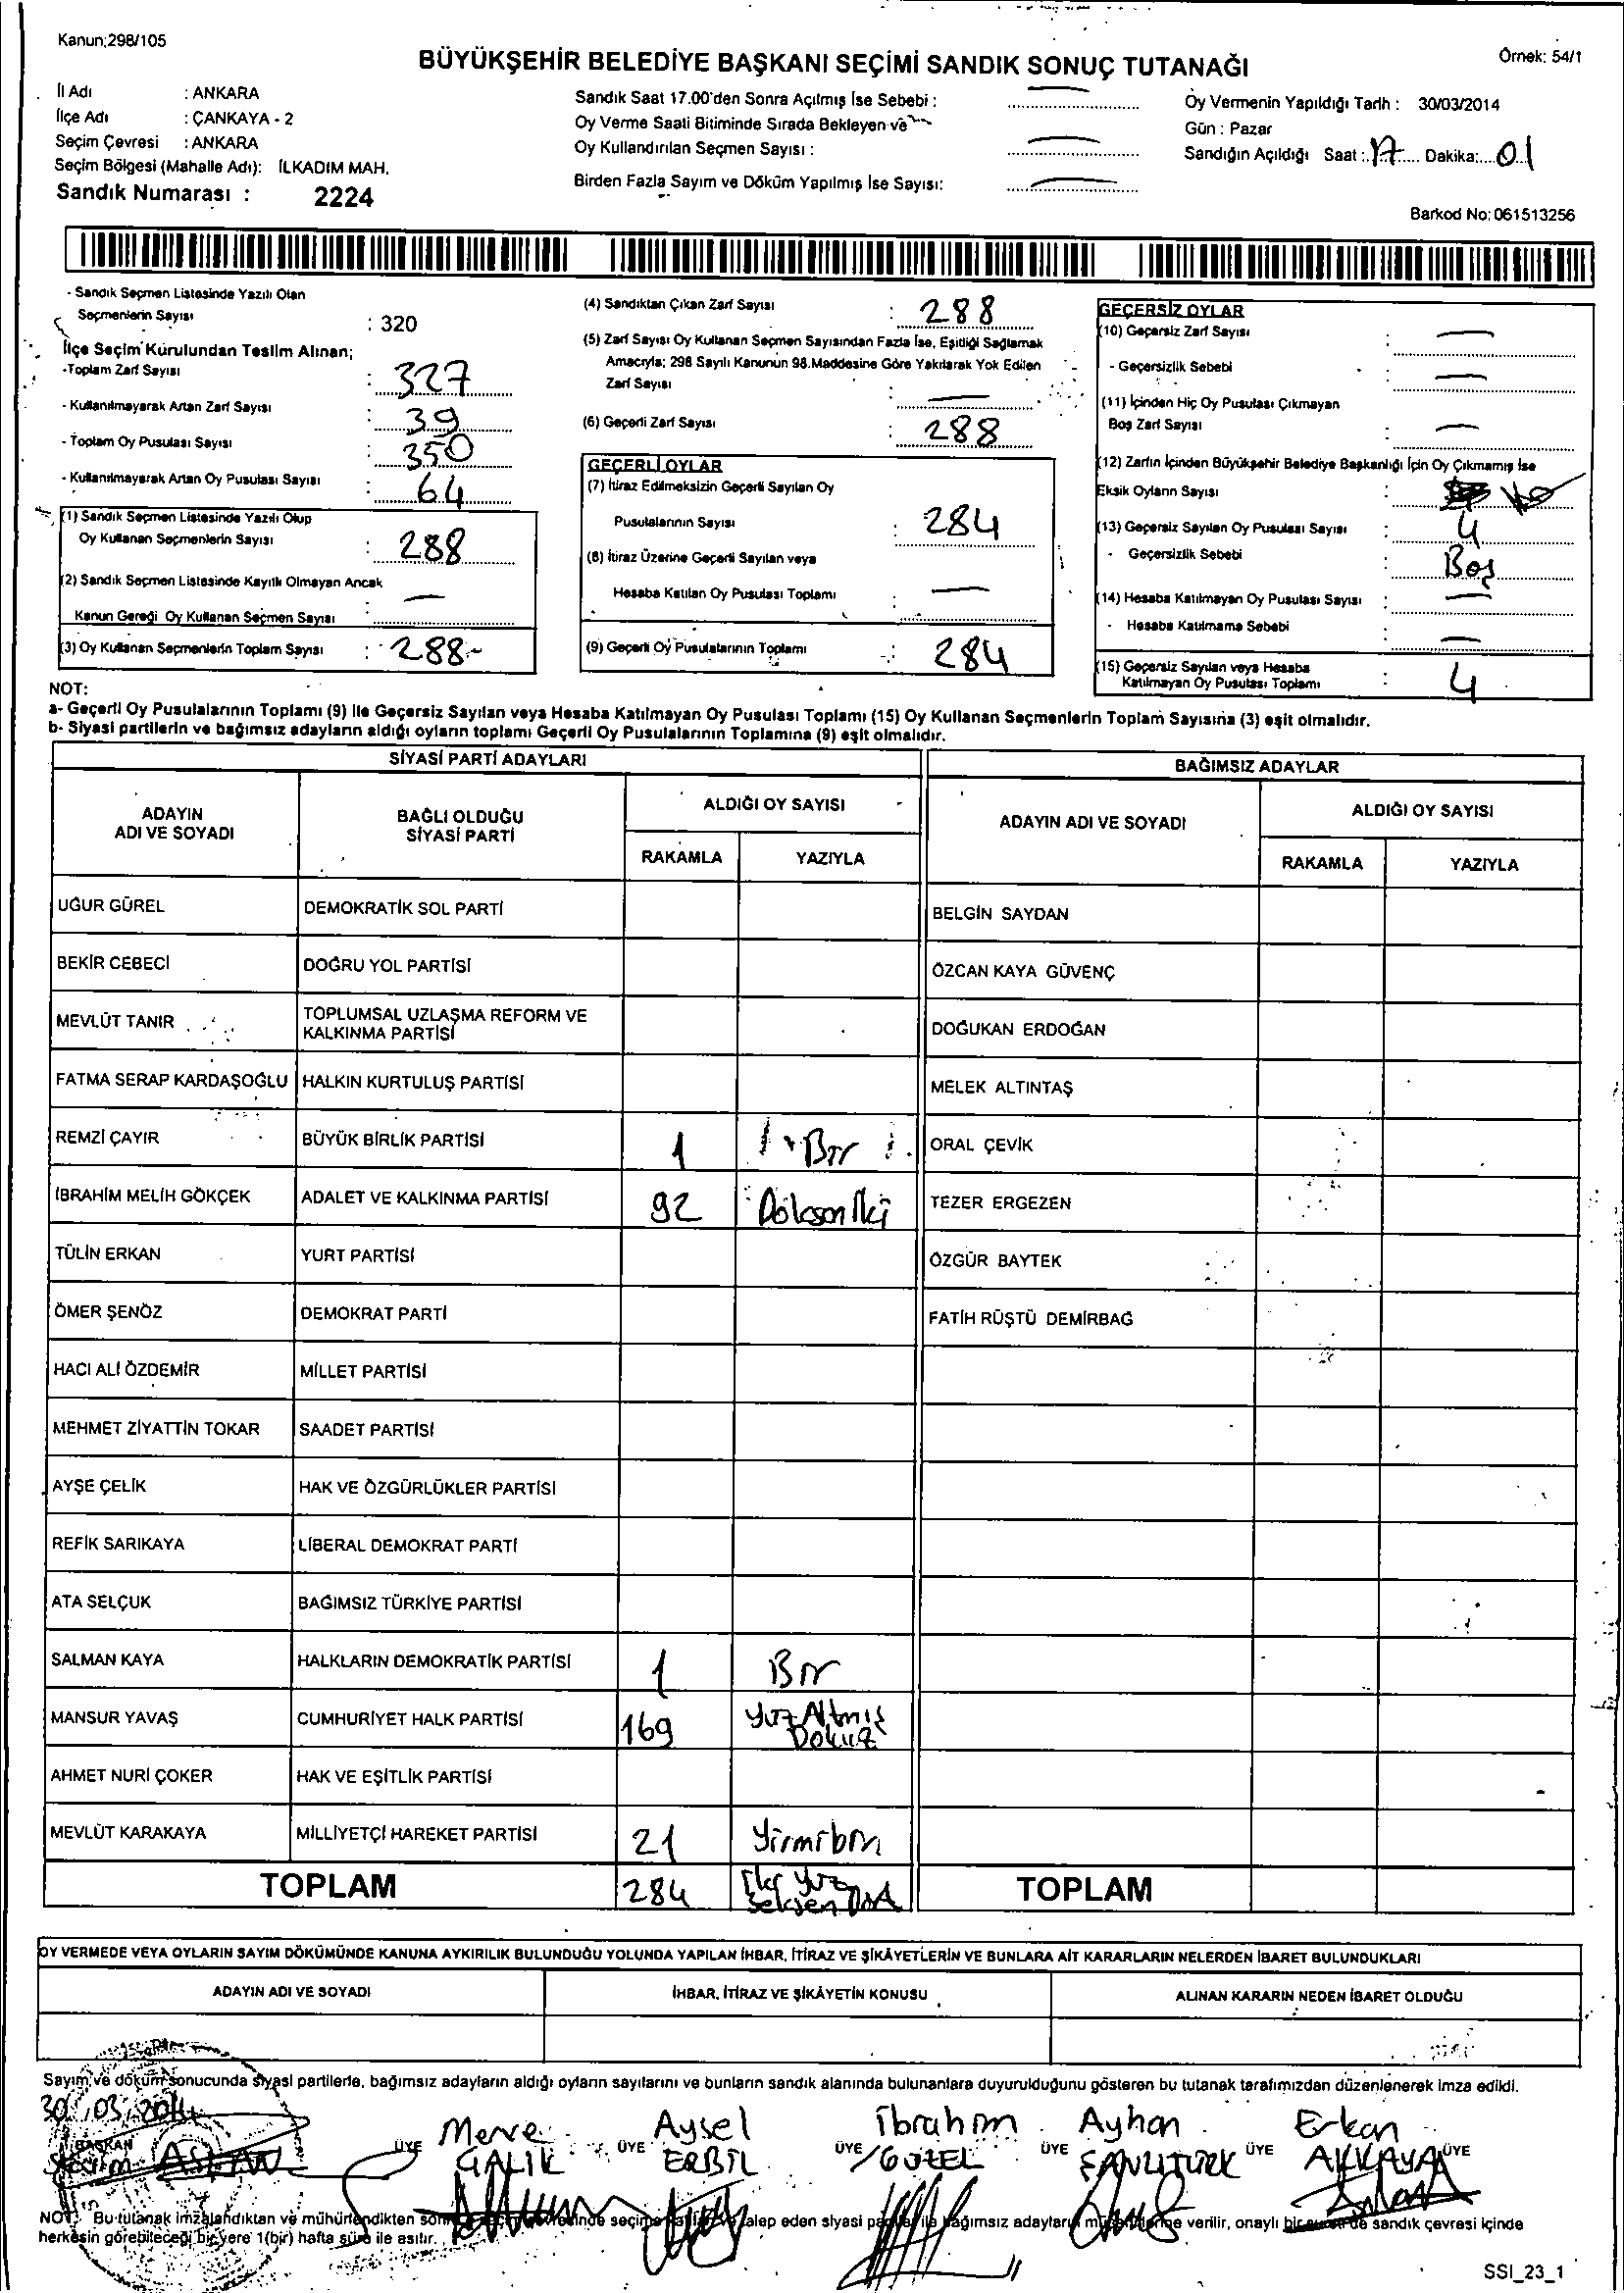 Kanun;298/105
Örnek: 54/1
BÜYÜKŞEHİR BELEDİYE BAŞKANI SEÇİMİ SANDIK SONUÇ TUTANAĞI
İl Adı : ANKARA
İlçe Adı : ÇANKAYA - 2
Seçim Çevresi : ANKARA
Seçim Bölgesi (Mahalle Adı): İLKADIM MAH.
Sandık Numarası : 2224
Sandık Saat 17.00'den Sonra Açılmış İse Sebebi :
Oy Verme Saati Bitiminde Sırada Bekleyen ve
Oy Kullandırılan Seçmen Sayısı :
Birden Fazla Sayım ve Döküm Yapılmış İse Sayısı:
Oy Vermenin Yapıldığı Tarih : 30/03/2014
Gün : Pazar
Sandığın Açıldığı Saat : 17 Dakika: 01
Barkod No: 061513256
- Sandık Seçmen Listesinde Yazılı Olan
Seçmenlerin Sayısı : 320
İlçe Seçim Kurulundan Teslim Alınan;
-Toplam Zarf Sayısı : 327
- Kullanılmayarak Artan Zarf Sayısı : 39
- Toplam Oy Pusulası Sayısı : 350
- Kullanılmayarak Artan Oy Pusulası Sayısı : 64
(1) Sandık Seçmen Listesinde Yazılı Olup
Oy Kullanan Seçmenlerin Sayısı : 288
(2) Sandık Seçmen Listesinde Kayıtlı Olmayan Ancak
Kanun Gereği Oy Kullanan Seçmen Sayısı : —
(3) Oy Kullanan Seçmenlerin Toplam Sayısı : 288-
(4) Sandıktan Çıkan Zarf Sayısı : 288
(5) Zarf Sayısı Oy Kullanan Seçmen Sayısından Fazla İse, Eşitliği Sağlamak
Amacıyla; 298 Sayılı Kanunun 98.Maddesine Göre Yakılarak Yok Edilen
Zarf Sayısı : —
(6) Geçerli Zarf Sayısı : 288
GEÇERLİ OYLAR
(7) İtiraz Edilmeksizin Geçerli Sayılan Oy
Pusulalarının Sayısı : 284
(8) İtiraz Üzerine Geçerli Sayılan veya
Hesaba Katılan Oy Pusulası Toplamı : —
(9) Geçerli Oy Pusulalarının Toplamı : 284
GEÇERSİZ OYLAR
(10) Geçersiz Zarf Sayısı : —
- Geçersizlik Sebebi : —
(11) İçinden Hiç Oy Pusulası Çıkmayan
Boş Zarf Sayısı : —
(12) Zarfın İçinden Büyükşehir Belediye Başkanlığı İçin Oy Çıkmamış İse
Eksik Oyların Sayısı :
(13) Geçersiz Sayılan Oy Pusulası Sayısı : 4
- Geçersizlik Sebebi : Boş
(14) Hesaba Katılmayan Oy Pusulası Sayısı : —
- Hesaba Katılmama Sebebi : —
(15) Geçersiz Sayılan veya Hesaba
Katılmayan Oy Pusulası Toplamı : 4
NOT:
a- Geçerli Oy Pusulalarının Toplamı (9) ile Geçersiz Sayılan veya Hesaba Katılmayan Oy Pusulası Toplamı (15) Oy Kullanan Seçmenlerin Toplam Sayısına (3) eşit olmalıdır.
b- Siyasi partilerin ve bağımsız adayların aldığı oyların toplamı Geçerli Oy Pusulalarının Toplamına (9) eşit olmalıdır.
SİYASİ PARTİ ADAYLARI
BAĞIMSIZ ADAYLAR
ADAYIN ADI VE SOYADI
BAĞLI OLDUĞU SİYASİ PARTİ
ALDIĞI OY SAYISI
RAKAMLA YAZIYLA
ADAYIN ADI VE SOYADI
ALDIĞI OY SAYISI
RAKAMLA YAZIYLA
UĞUR GÜREL DEMOKRATİK SOL PARTİ BELGİN SAYDAN
BEKİR CEBECİ DOĞRU YOL PARTİSİ ÖZCAN KAYA GÜVENÇ
MEVLÜT TANIR TOPLUMSAL UZLAŞMA REFORM VE KALKINMA PARTİSİ DOĞUKAN ERDOĞAN
FATMA SERAP KARDAŞOĞLU HALKIN KURTULUŞ PARTİSİ MELEK ALTINTAŞ
REMZİ ÇAYIR BÜYÜK BİRLİK PARTİSİ 1 Bir ORAL ÇEVİK
İBRAHİM MELİH GÖKÇEK ADALET VE KALKINMA PARTİSİ 92 Doksan İki TEZER ERGEZEN
TÜLİN ERKAN YURT PARTİSİ ÖZGÜR BAYTEK
ÖMER ŞENÖZ DEMOKRAT PARTİ FATİH RÜŞTÜ DEMİRBAĞ
HACI ALİ ÖZDEMİR MİLLET PARTİSİ
MEHMET ZİYATTİN TOKAR SAADET PARTİSİ
AYŞE ÇELİK HAK VE ÖZGÜRLÜKLER PARTİSİ
REFİK SARIKAYA LİBERAL DEMOKRAT PARTİ
ATA SELÇUK BAĞIMSIZ TÜRKİYE PARTİSİ
SALMAN KAYA HALKLARIN DEMOKRATİK PARTİSİ 1 Bir
MANSUR YAVAŞ CUMHURİYET HALK PARTİSİ 169 Yüz Altmış Dokuz
AHMET NURİ ÇOKER HAK VE EŞİTLİK PARTİSİ
MEVLÜT KARAKAYA MİLLİYETÇİ HAREKET PARTİSİ 21 Yirmibir
TOPLAM 284 İki Yüz Seksen Dört TOPLAM
OY VERMEDE VEYA OYLARIN SAYIM DÖKÜMÜNDE KANUNA AYKIRILIK BULUNDUĞU YOLUNDA YAPILAN İHBAR, İTİRAZ VE ŞİKÂYETLERİN VE BUNLARA AİT KARARLARIN NELERDEN İBARET BULUNDUKLARI
ADAYIN ADI VE SOYADI İHBAR, İTİRAZ VE ŞİKÂYETİN KONUSU ALINAN KARARIN NEDEN İBARET OLDUĞU
Sayım ve döküm sonucunda siyasi partilerle, bağımsız adayların aldığı oyların sayılarını ve bunların sandık alanında bulunanlara duyurulduğunu gösteren bu tutanak tarafımızdan düzenlenerek imza edildi.
30/03/2014
BAŞKAN ÜYE ÜYE ÜYE ÜYE ÜYE ÜYE
ASLAN
Merve ÇALIK
Aysel ERBİL
İbrahim GÜZEL
Ayhan
Erkan AKKAYA
NOT: Bu tutanak imzalandıktan ve mühürlendikten talep eden siyasi bağımsız adayların verilir, onaylı sandık çevresi içinde
herkesin görebileceği bir yere 1(bir) hafta süre ile asılır.
SSI_23_1